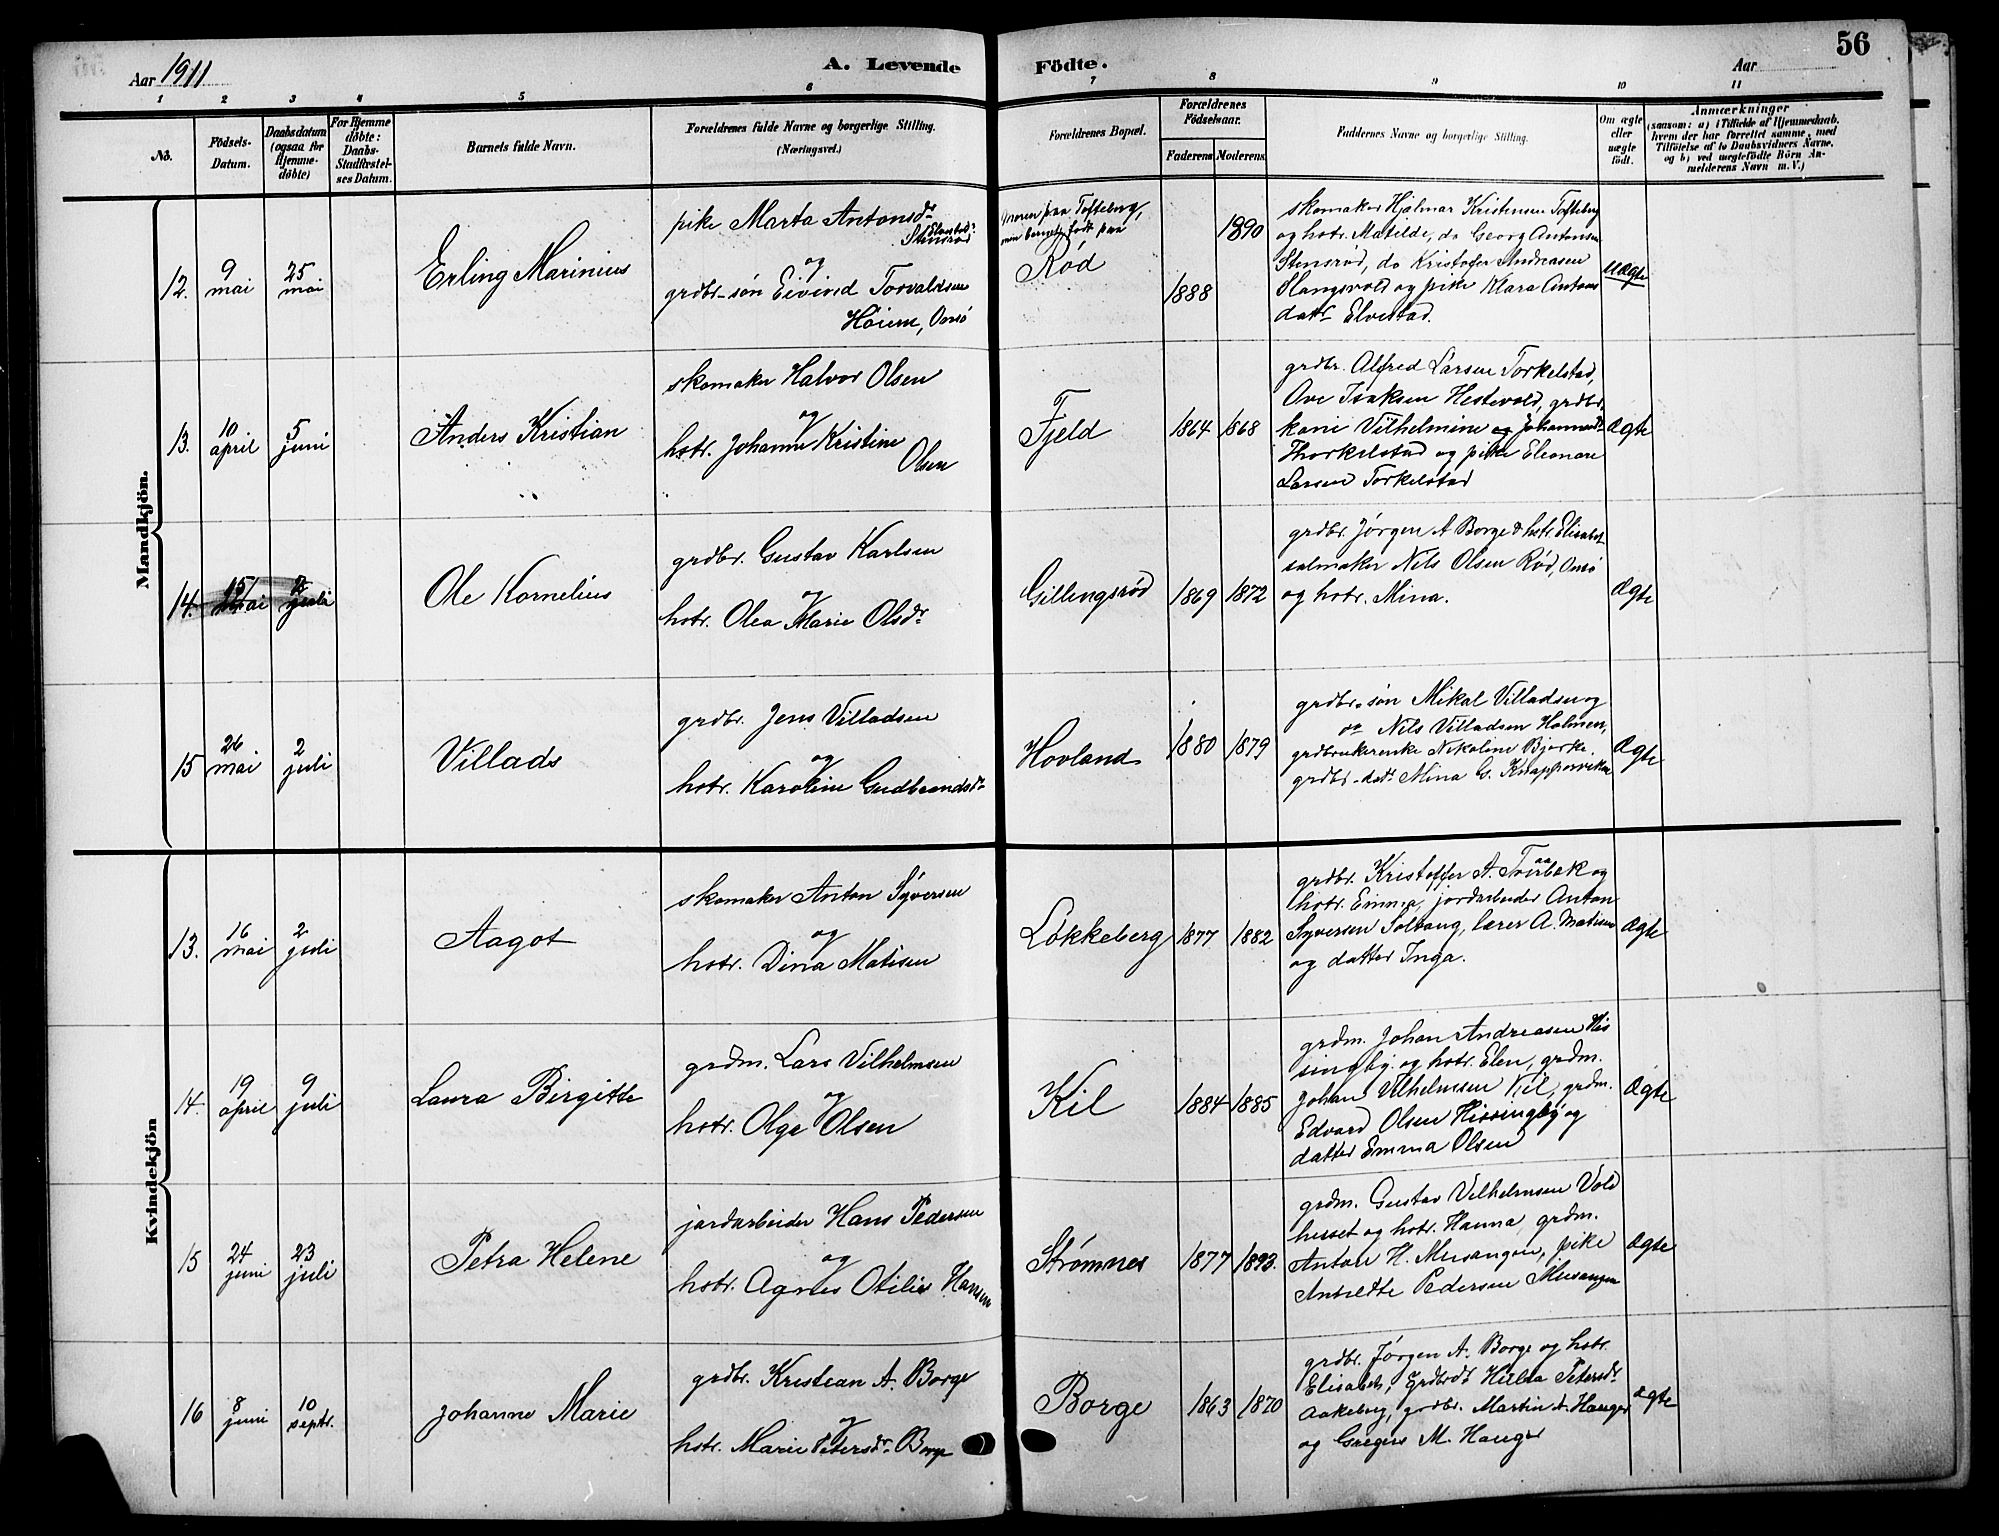 56
Aar 1911
A. Levende
Födte.
Aar
1 2 3 4 5 6 7 8 9 10 11
No.
Födsels-
Datum.
Daabsdatum
(ogsaa for
Hjemme-
döbte)
For Hjemme
döbte:
Daabs-
Stadfæstel-
ses Datum.
Barnets fulde Navn.
Forældrenes fulde Navne og borgerlige Stilling.
(Næringsvei.)
Forældrenes Bopæl.
Forældrenes
Födselsaar.
Faderens
Moderens
Faddernes Navne og borgerlige Stilling.
Om ægte
eller
uægte
födt.
Anmærkninger
(saasom: a) i Tilfælde af Hjemmedaab,
hvem der har forrettet samme, med
Tilföielse af to Daabsvidners Navne,
og b) ved uægtefödte Börn An-
melderens Navn m. V.)
Mandkjön.
12.
9
mai
25
mai
Erling Marinius
pike Marta Antonsdr
Elvestad
Stensrød
og
grdbr-søn Eivind Torvaldsen
Høiem, Onsø
Moren paa Tofteberg,
men barnet født paa
Rød
1888
1890
skomaker Hjalmar Kristensen Tofteberg
og hstr. Matilde, do Georg Antonsen
Stensrød, do Kristofer Andreasen
Slangsvold og pike Klara Antons
datr Elvestad.
uægte
13.
10
april
5
juni
Anders Kristian
skomaker Halvor Olsen
og
hstr. Johanne Kristine
Olsen
Fjeld
1864
1868
grdbr. Alfred Larsen Torkelstad,
Ove Isaksen Hestevold, grdbr.
kone Vilhelmine og Johannesdr
Thorkelstad og pike Eleonare
Larsen Torkelstad
Ægte
14.
15
mai
2
juli
Ole Kornelius
grdbr. Gustav Karlsen
og
hstr. Olea Marie Olsdr
Gillingsrød
1869
1872
grdbr. Jørgen A Borge & hstr. Elisabet
salmaker Nils Olsen Rød, Onsø
og hstr. Mina.
Ægte
15
26
mai
2
juli
Villads
grdbr. Jens Villadsen
og
hstr. Karoline Gudbrandsdr
Hovland
1880
1879
grdbr.søn Mikal Villadsen og
do Nils Villadsen Holmen,
grdbrukerenke Nikoline Bjerke,
grdbr-datr Mina G. Knapperviken
Ægte
Kvindekjön
13.
16
mai
2
juli
Aagot
skomaker Anton Syversen
og
hstr. Dina Matisen
Løkkeberg
1877
1882
grdbr. Kristoffer A. Tvirbæk og
hstr. Emma, jordarbeider Anton
Syversen Solbang, lærer A. Matisen
og datter Inga.
Ægte
14.
19
april
9
juli
Laura Birgitte
grdm. Lars Vilhelmsen
og
hstr. Olga Olsen
Kil
1884
1885
grdm. Johan Andreasen His
singby og hstr. Elen, grdm.
Johan Vilhelmsen Kil, grdm.
Edvard Olsen Hissingby og
datter Emma Olsen
Ægte
15
24
juni
23
juli
Petra Helene
jordarbeider Hans Pedersen
og
hstr. Agnes Otilie Hansen
Strømnes
1877
1893.
grdm. Gustav Vilhelmsen Vold
huset og hstr. Hanna, grdm.
Anton H. Musangen, pike
Anette Pedersen Musangen
Ægte
16
8
juni
10
septr.
Johanne Marie
grdbr. Kristian A. Borge
og
hstr. Marie Petersdr. Borge
Borge
1863
1870
grdbr. Jørgen A. Borge og hstr.
Elisabeth, grdbrdr Hilda Petersdr
Aakeberg, grdbr. Martin A Hauger
og Gregers M. Hauger
Ægte